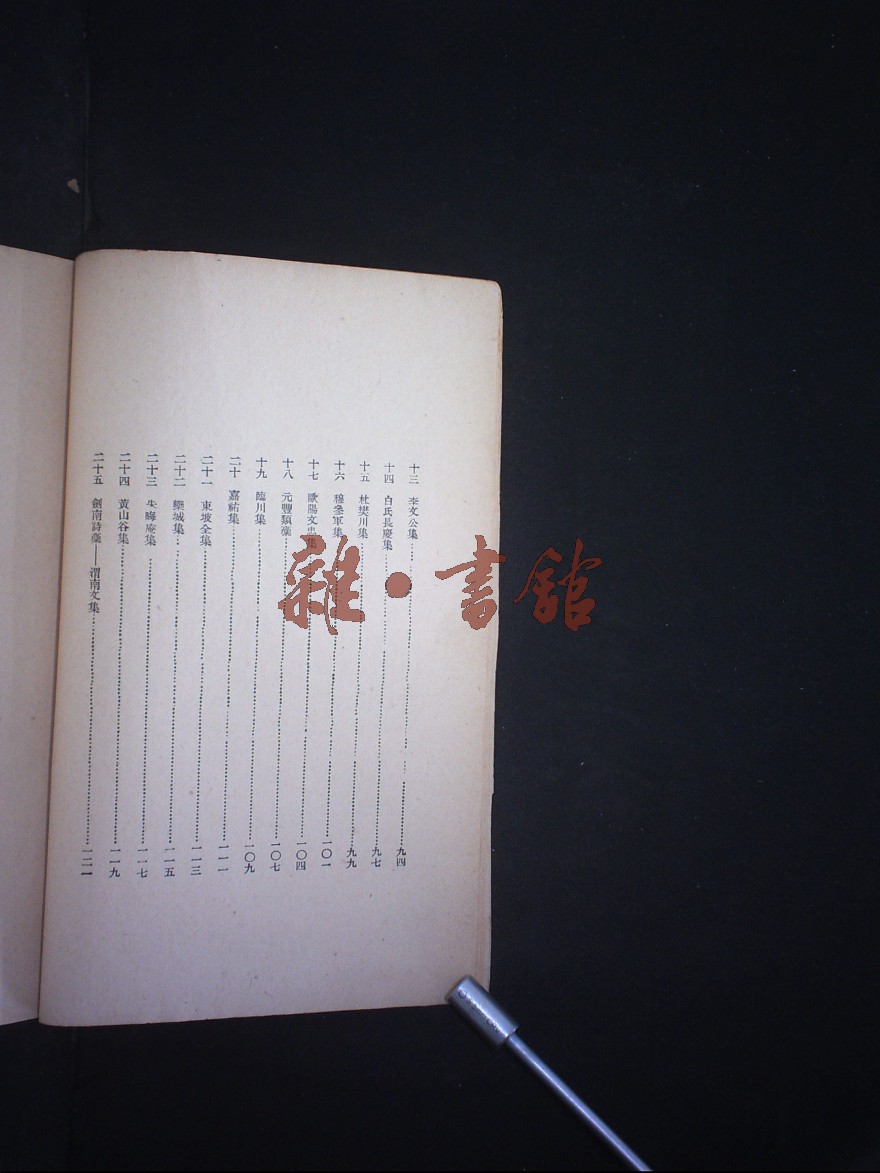 十三 李文公集 九四
十四 白氏長慶集 九七
十五 杜樊川集 九九
十六 穆參軍集 一〇一
十七 歐陽文忠集 一〇四
十八 元豐類藁 一〇七
十九 臨川集 一〇九
二十 嘉祐集 一一一
二十一 東坡全集 一一三
二十二 欒城集 一一五
二十三 朱晦庵集 一一七
二十四 黃山谷集 一一九
二十五 劍南詩藁——渭南文集 一二一
雜·書館